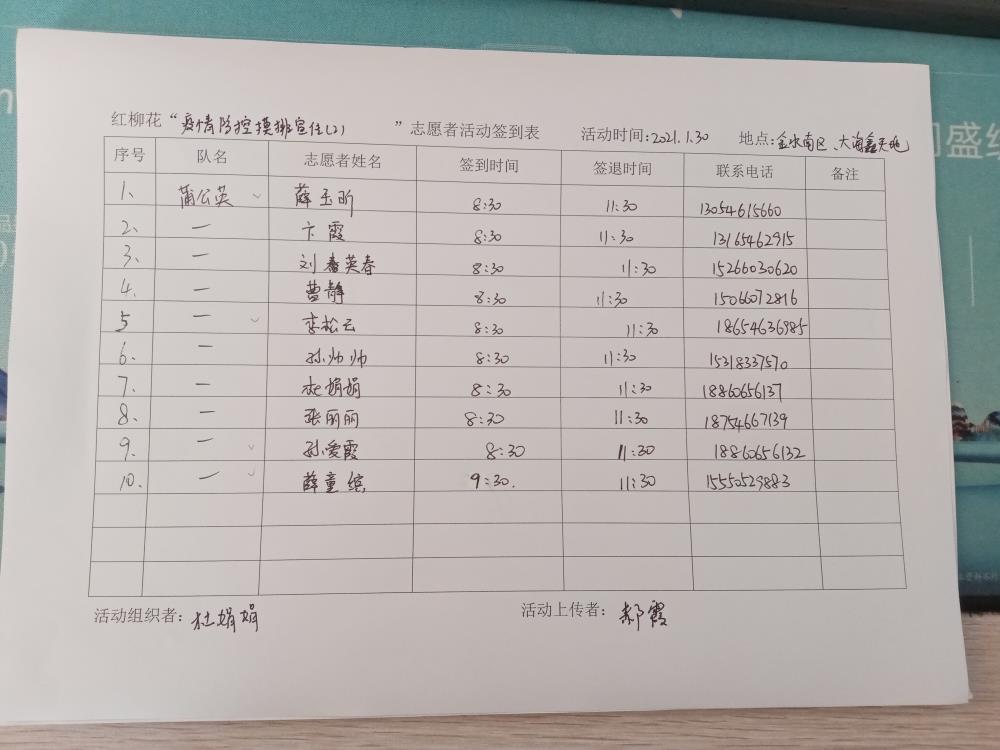 红柳花“疫情防控摸排宣传(2)”志愿者活动签到表 活动时间:2021.1.30 地点:金水南区、大海鑫天地
序号 队名 志愿者姓名 签到时间 签退时间 联系电话 备注
1、 蒲公英 薛玉昕 8:30 11:30 13054615660
2、 一 卞霞 8:30 11:30 13165462915
3、 一 刘春英春 8:30 11:30 15266030620
4、 一 曹静 8:30 11:30 15066072816
5 一 李松云 8:30 11:30 18654636985
6、 一 孙帅帅 8:30 11:30 15318337570
7、 一 杜娟娟 8:30 11:30 18860656137
8、 一 张丽丽 8:30 11:30 18754667139
9、 一 孙爱霞 8:30 11:30 18860656132
10、 一 薛童缤 9:30. 11:30 15550529883
活动组织者:杜娟娟 活动上传者:郝霞